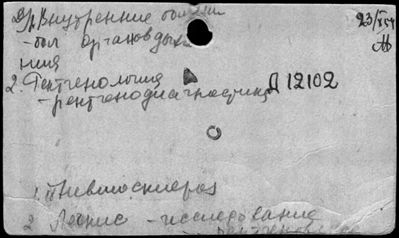 Внутренние болезни
- бол органов дыха
ния
2. Рентгенология
- рентгенодиагностика
Д 12102
1. Пневмосклероз
2 Легкие - исследование